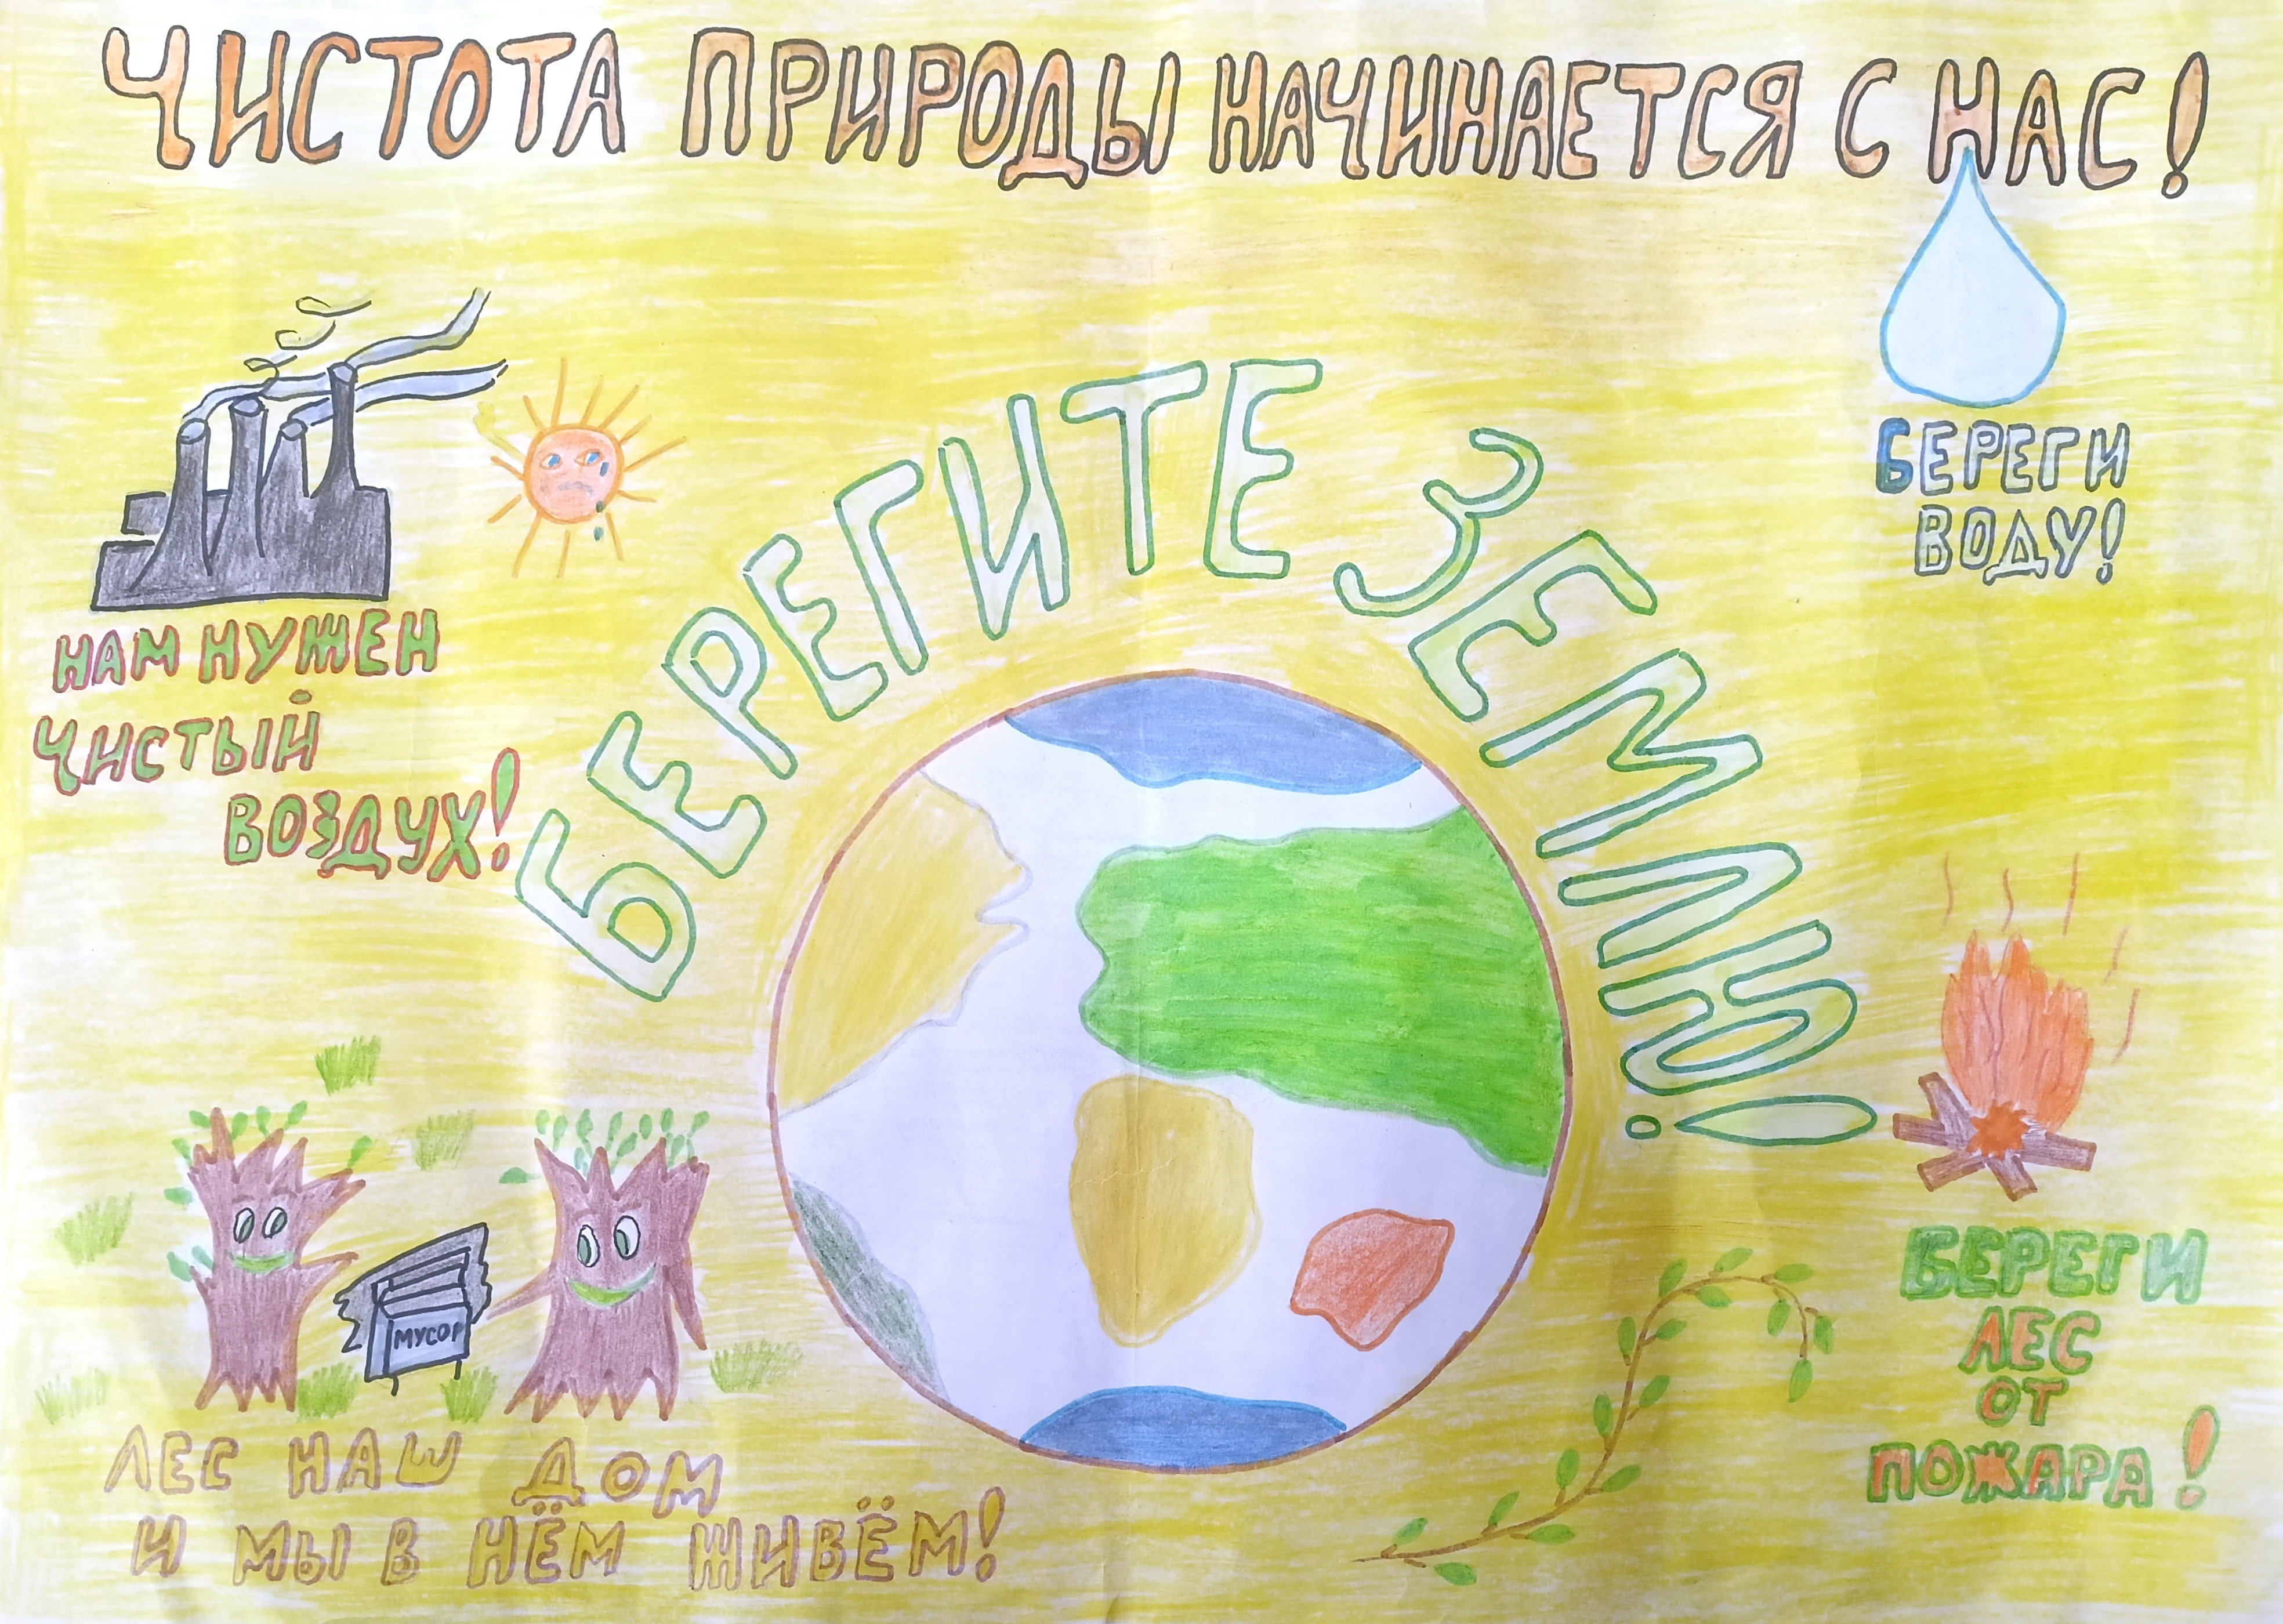 ЧИСТОТА ПРИРОДЫ НАЧИНАЕТСЯ С НАС!
БЕРЕГИ
ВОДУ!
БЕРЕГИТЕ ЗЕМЛЮ!
НАМ НУЖЕН
ЧИСТЫЙ
ВОЗДУХ!
МУСОР
ЛЕС НАШ ДОМ
И МЫ В НЁМ ЖИВЁМ!
БЕРЕГИ
ЛЕС
ОТ
ПОЖАРА!